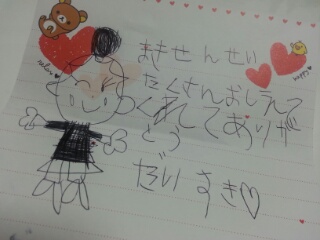 まきせんせい
たくさんおしえて
くれてありが
とう
だいすき♡